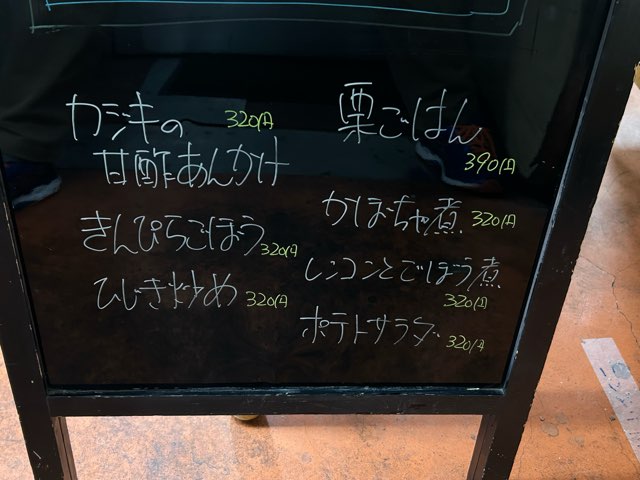 カジキの 320円
甘酢あんかけ
きんぴらごぼう 320円
ひじき炒め 320円
栗ごはん
390円
かぼちゃ煮 320円
レンコンとごぼう煮
320円
ポテトサラダ 320円